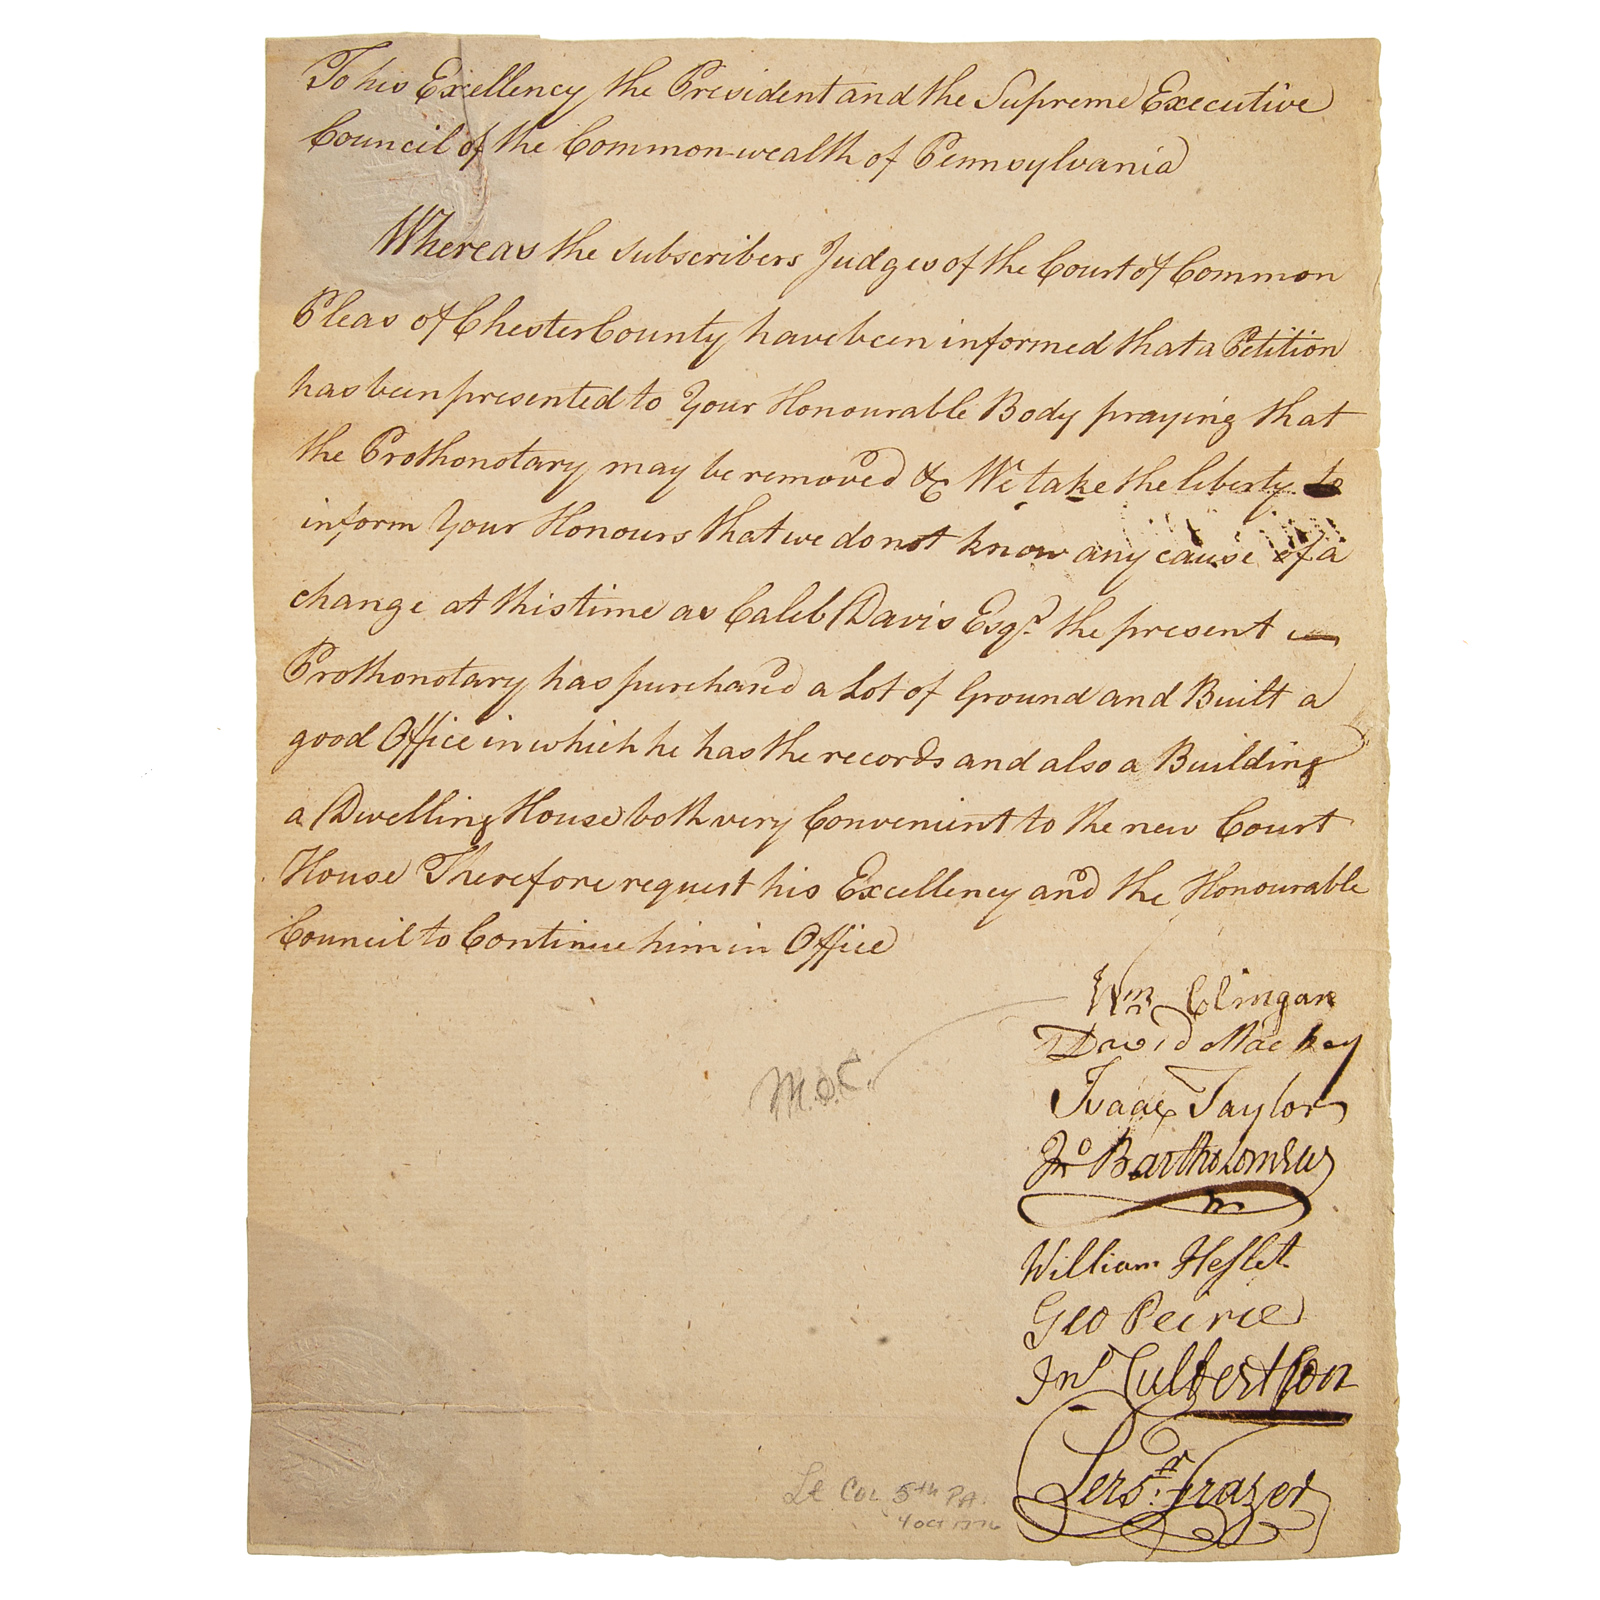 To his Excellency the President and the Supreme Executive
Council of the Common-wealth of Pennsylvania
Whereas the subscribers Judges of the Court of Common
Pleas of Chester County have been informed that a Petition
has been presented to Your Honourable Body praying that
the Prothonotary may be removed &c We take the liberty to
inform Your Honours that we do not know any cause of a
change at this time as Caleb Davis Esqr. the present
Prothonotary has purchased a Lot of Ground and Built a
good Office in which he has the records and also a Building
a Dwelling House both very Convenient to the new Court
House Therefore request his Excellency and the Honourable
Council to Continue him in Office
Wm Clingan
David Mackey
M.O.C.
Isaac Taylor
Jno Bartholomew
William Heslet
Geo Peirce
Jno Culbertson
Persr. Frazer
Lt Col 5th PA.
4 Oct 1776